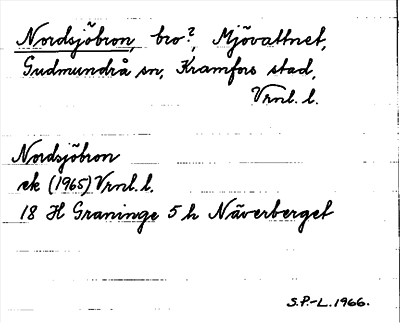 Nordsjöbron, bro?, Mjövattnet,
Gudmundrå sn, Kramfors stad,
Vrnl. l.
Nordsjöbron
ek (1965) Vrnl. l.
18 H Graninge 5 h Näverberget
S.P.-L. 1966.